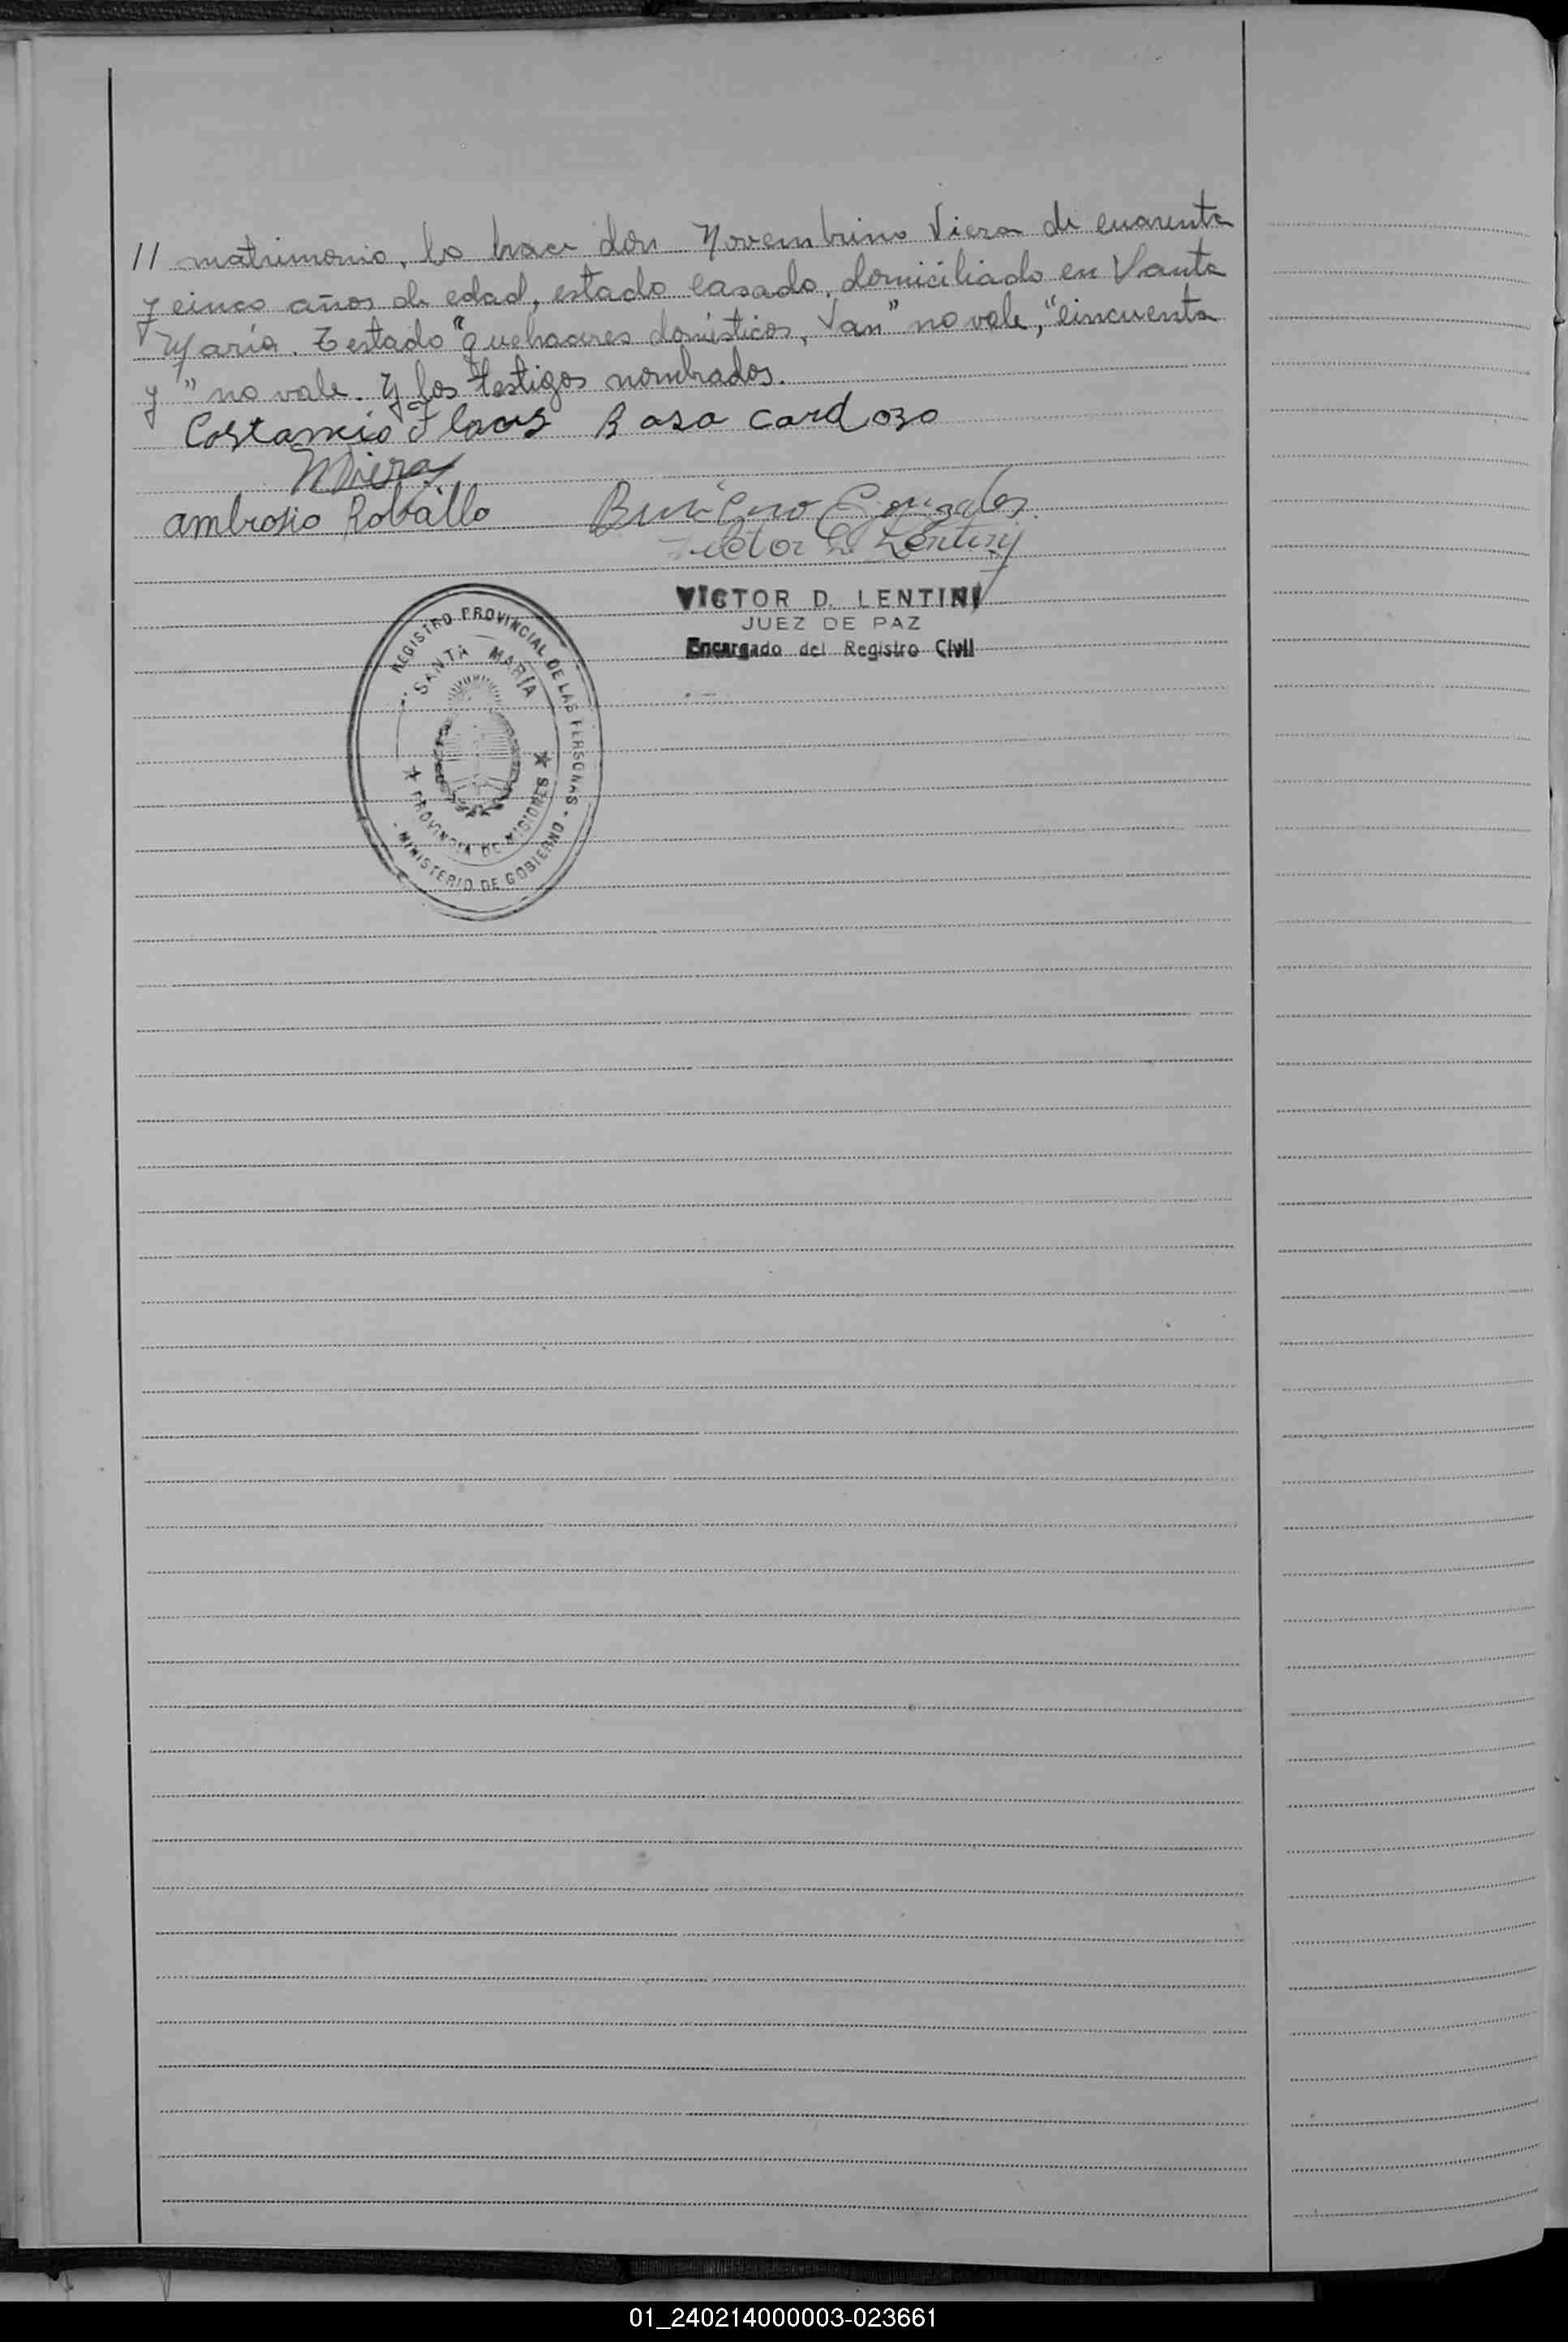 // matrimonio, lo hace don Novembrino Viera de cuarenta
y cinco años de edad, estado casado, domiciliado en Santa
María. Testado "quehaceres domésticos, San" no vale, "cincuenta
y" no vale. Y los testigos nombrados.
Costancio Rosa Cardozo
NViera
ambrosio Roballo Gonzalez
Victor D Lentini
VICTOR D. LENTINI
JUEZ DE PAZ
Encargado del Registro Civil
REGISTRO PROVINCIAL DE LAS PERSONAS -
SANTA MARÍA
PROVINCIA DE MISIONES
- MINISTERIO DE GOBIERNO
01_240214000003-023661